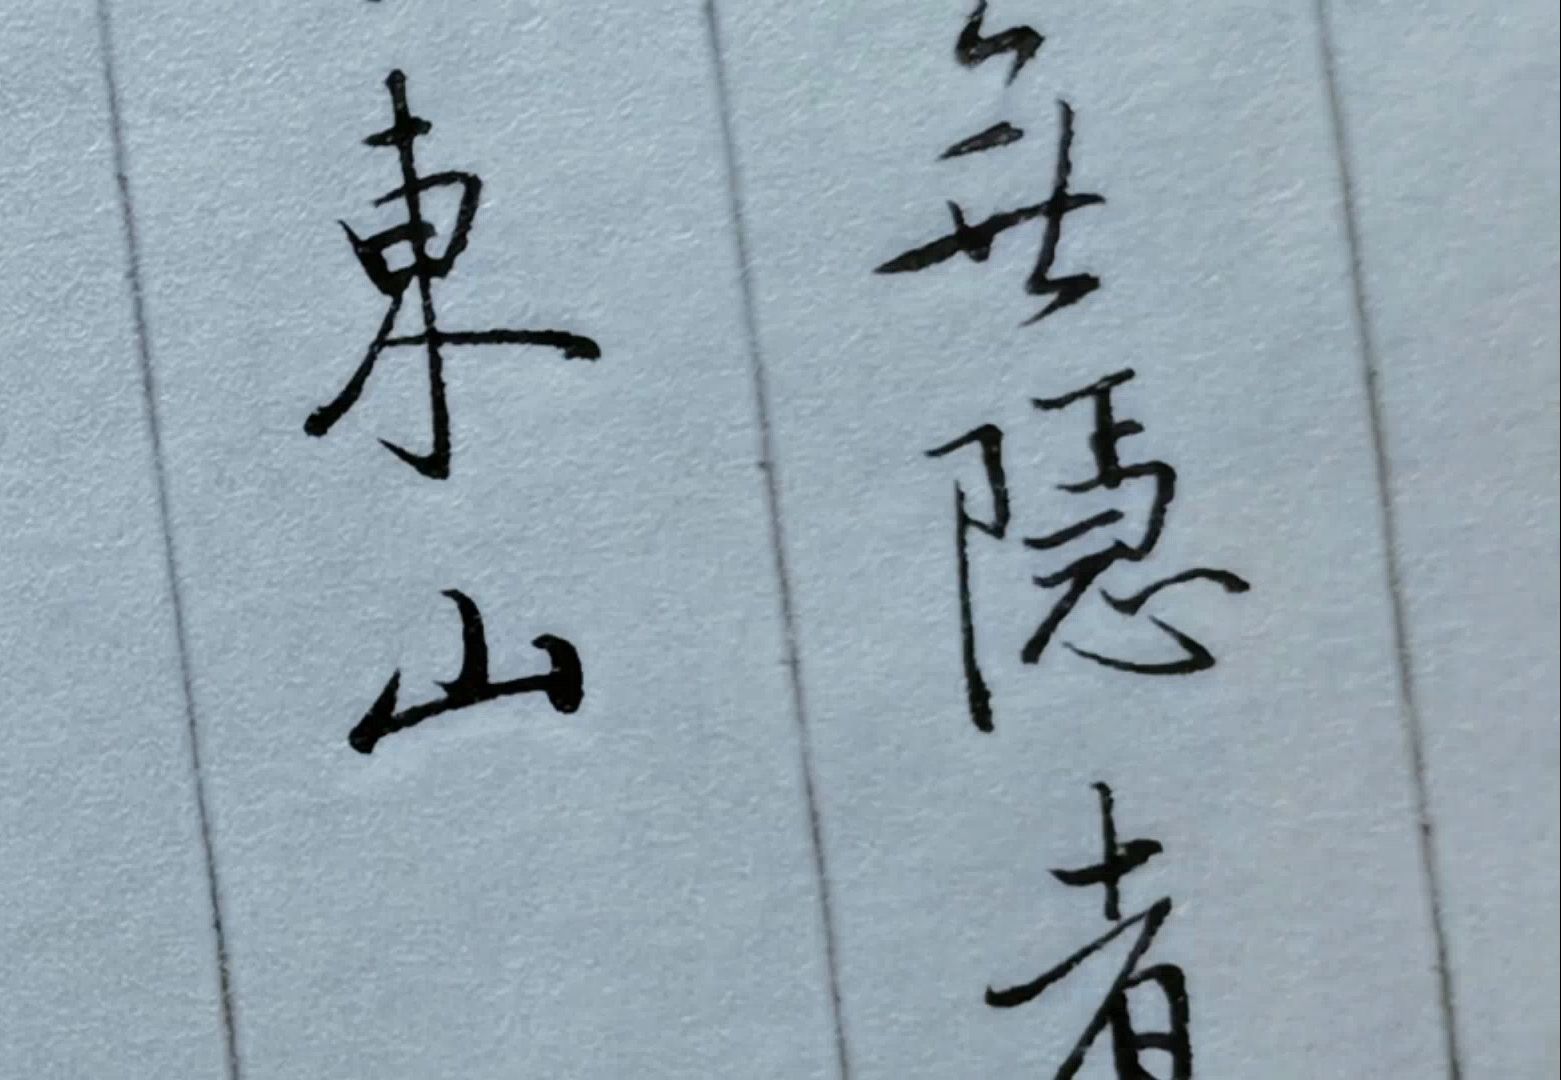 無隱者
東山